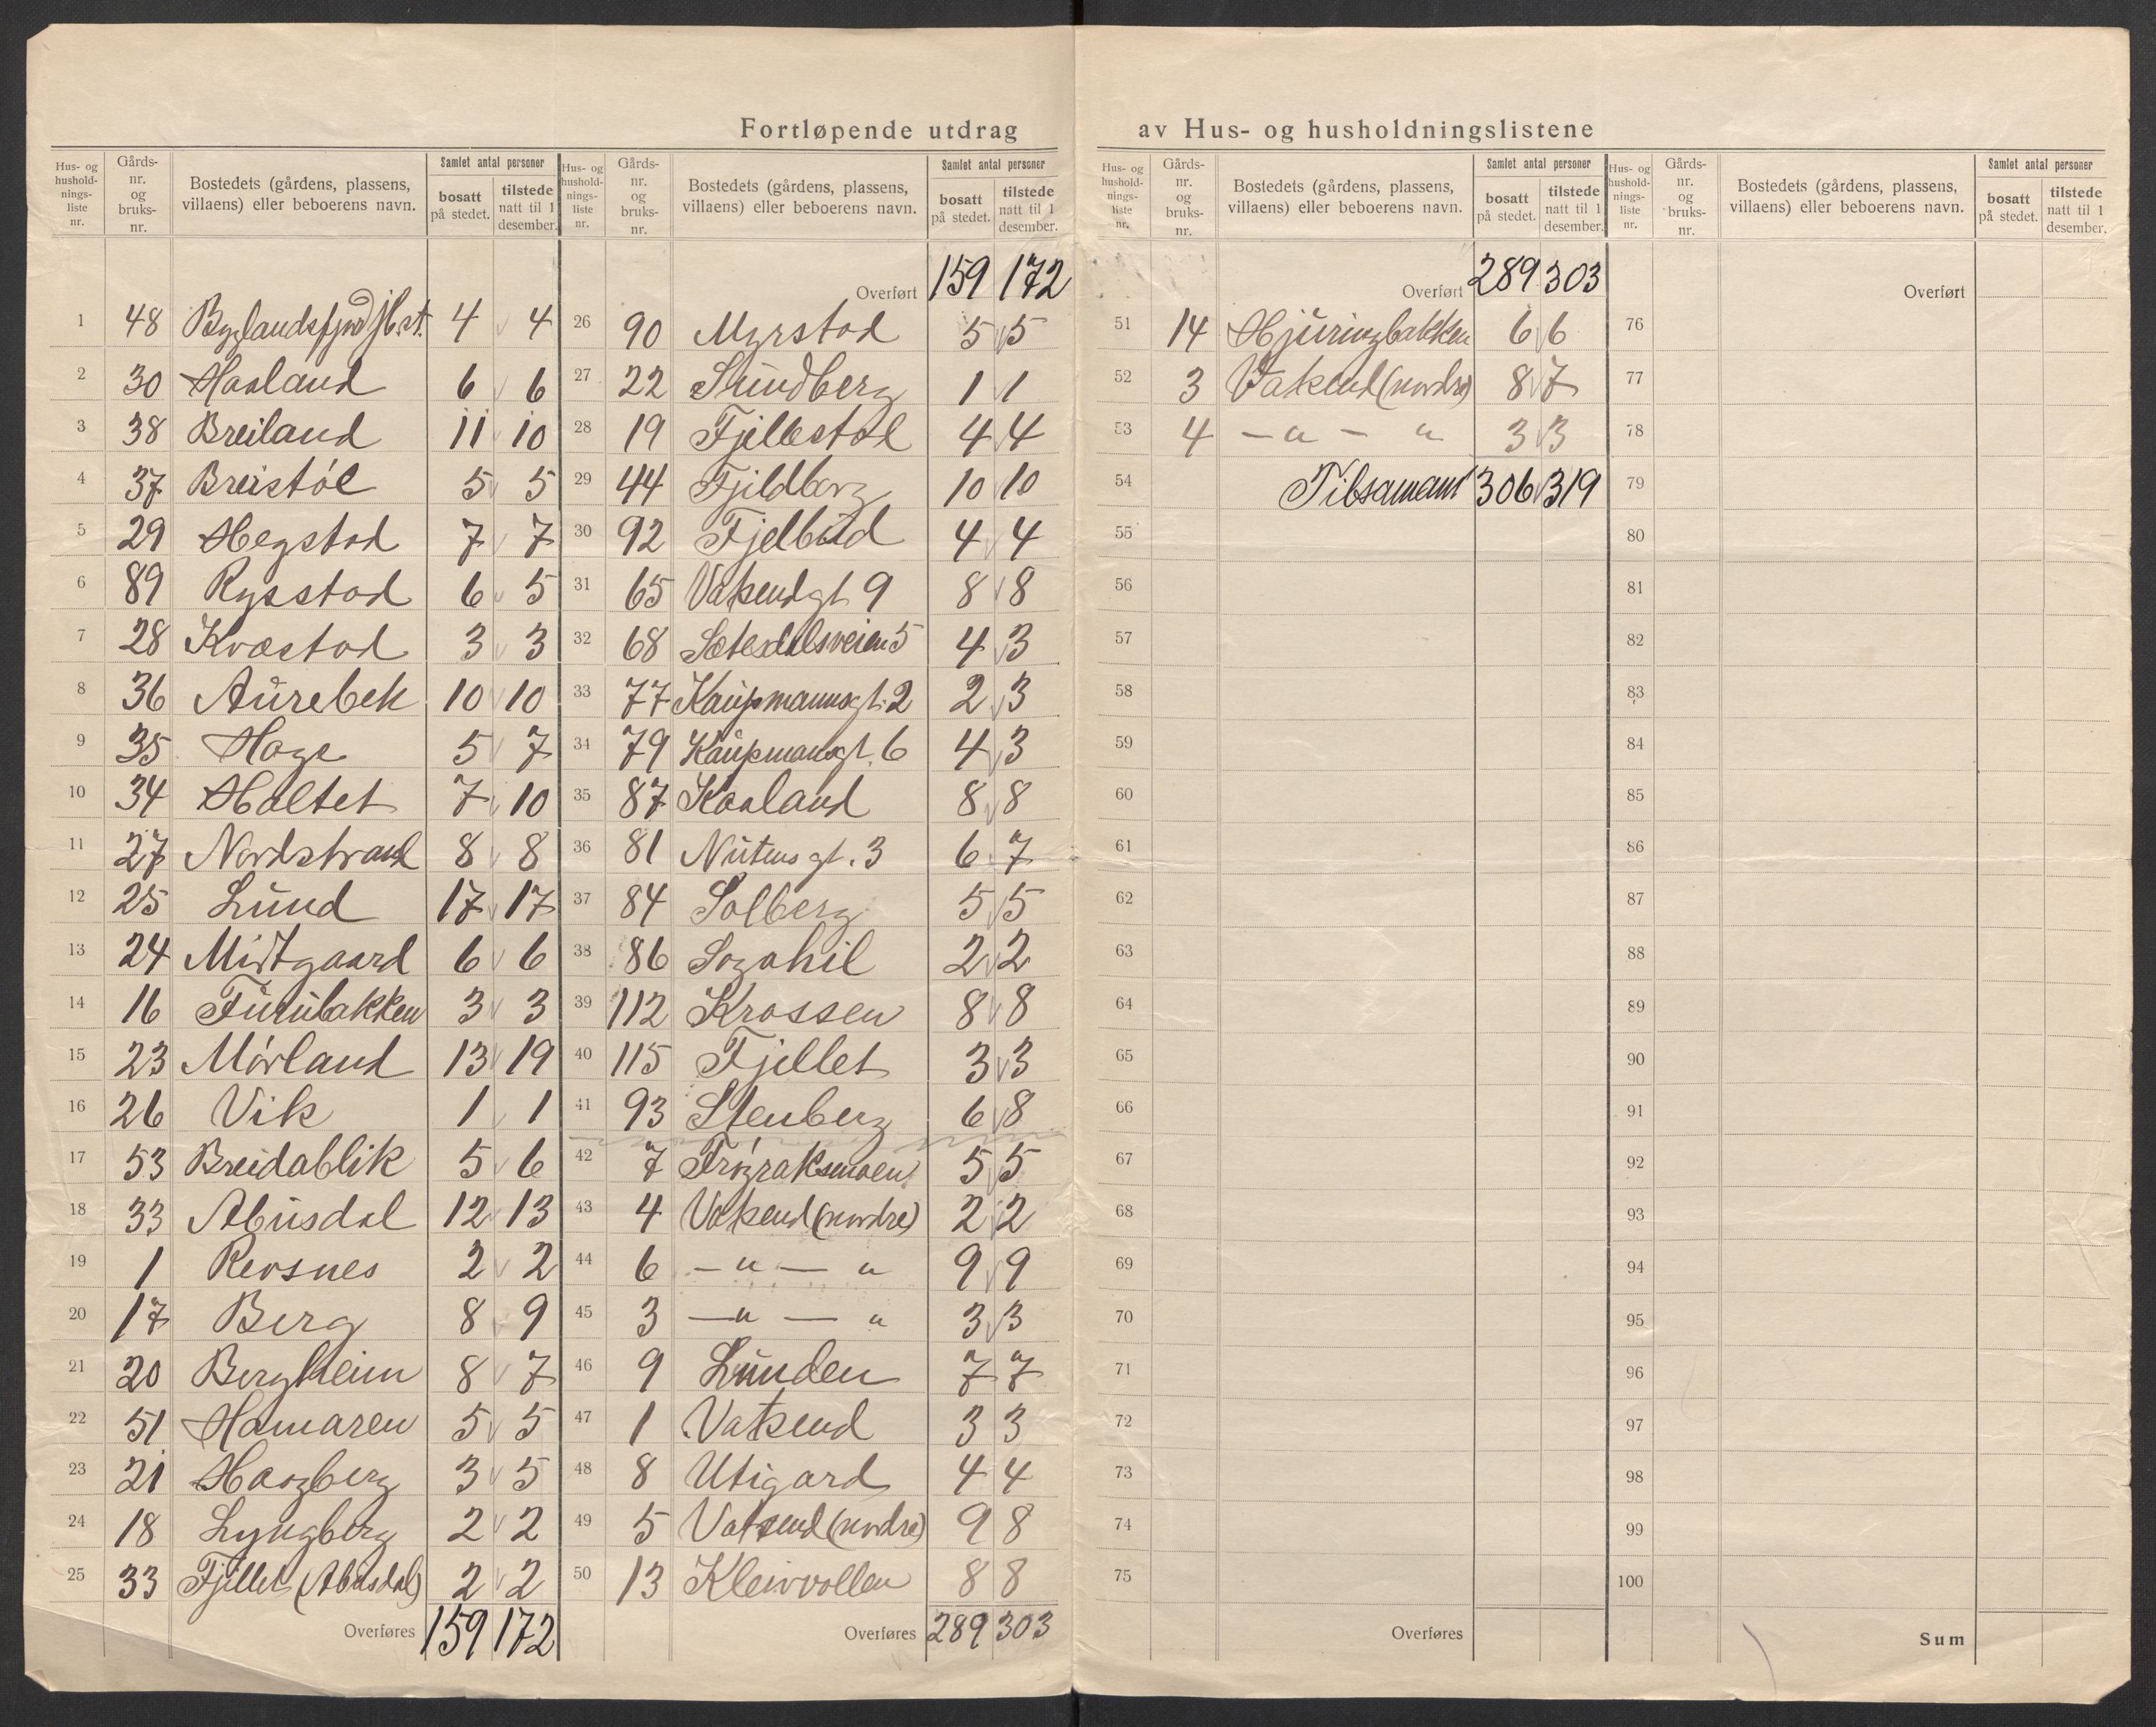 Fortløpende utdrag av Hus- og husholdningslistene
Hus- og husholdnings-liste nr. Gårds-nr. og bruks-nr. Bostedets (gårdens, plassens, villaens) eller beboerens navn. Samlet antal personer bosatt på stedet. tilstede natt til 1 desember.
1 48 Byglandsfjord jb.st. 4 4
2 30 Haaland 6 6
3 38 Breiland 11 10
4 37 Breistøl 5 5
5 29 Hegstad 7 7
6 89 Rysstad 6 5
7 28 Kvæstad 3 3
8 36 Aurebek 10 10
9 35 Hage 5 7
10 34 Holtet 7 10
11 27 Nordstrand 8 8
12 25 Lund 17 17
13 24 Midtgaard 6 6
14 16 Furubakken 3 3
15 23 Mørland 13 19
16 26 Vik 1 1
17 53 Breidablik 5 6
18 33 Abusdal 12 13
19 1 Revsnes 2 2
20 17 Berg 8 9
21 20 Bergheim 8 7
22 51 Hamaren 5 5
23 21 Haugberg 3 5
24 18 Lyngberg 2 2
25 33 Fjellet (Abusdal) 2 2
Overføres 159 172
Hus- og husholdnings-liste nr. Gårds-nr. og bruks-nr. Bostedets (gårdens, plassens, villaens) eller beboerens navn. Samlet antal personer bosatt på stedet. tilstede natt til 1 desember.
Overført 159 172
26 90 Myrstad 5 5
27 22 Sundberg 1 1
28 19 Fjellestøl 4 4
29 44 Fjeldberg 10 10
30 92 Fjelbud 4 4
31 65 Vatsendgt. 9 8 8
32 68 Setesdalsveien 5 4 3
33 77 Kaupmannsgt. 2 2 3
34 79 Kaupmansgt. 6 4 3
35 87 Kaaland 8 8
36 81 Nutensgt. 3 6 7
37 84 Solberg 5 5
38 86 2 2
39 112 Krossen 8 8
40 115 Fjellet 3 3
41 93 Stenberg 6 8
42 7 Frøyraksmoen 5 5
43 4 Vatsend (nordre) 2 2
44 6 — „ — „ 9 9
45 3 — „ — „ 3 3
46 9 Lunden 7 7
47 1 Vatsend 3 3
48 8 Utigard 4 4
49 5 Vatsend (nordre) 9 8
50 13 Kleivvollen 8 8
Overføres 289 303
Hus- og husholdnings-liste nr. Gårds-nr. og bruks-nr. Bostedets (gårdens, plassens, villaens) eller beboerens navn. Samlet antal personer bosatt på stedet. tilstede natt til 1 desember.
Overført 289 303
51 14 Hjuringbakken 6 6
52 3 Vatsend (nordre) 8 7
53 4 — „ — „ 3 3
54 Tilsamans 306 319
55
56
57
58
59
60
61
62
63
64
65
66
67
68
69
70
71
72
73
74
75
Overføres
Hus- og husholdnings-liste nr. Gårds-nr. og bruks-nr. Bostedets (gårdens, plassens, villaens) eller beboerens navn. Samlet antal personer bosatt på stedet. tilstede natt til 1 desember.
Overført
76
77
78
79
80
81
82
83
84
85
86
87
88
89
90
91
92
93
94
95
96
97
98
99
100
Sum